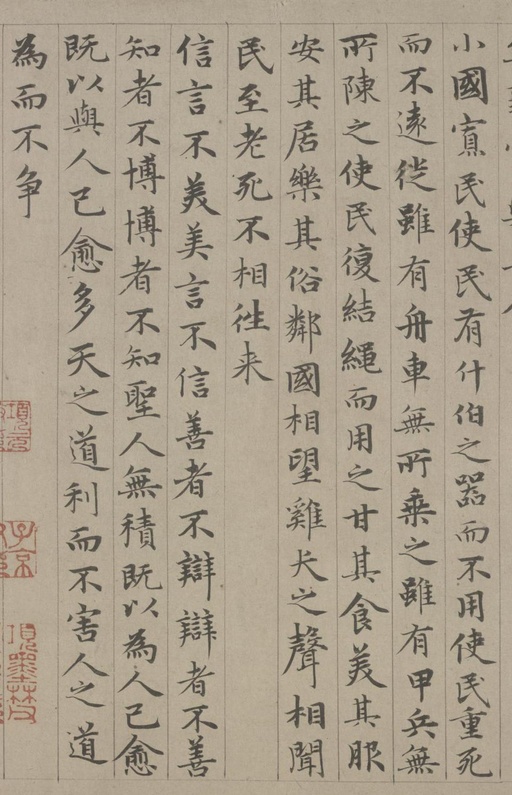 小國寡民使民有什伯之器而不用使民重死
而不遠徙雖有舟車無所乗之雖有甲兵無
所陳之使民復結繩而用之甘其食美其服
安其居樂其俗鄰國相望雞犬之聲相聞
民至老死不相徃来
信言不美美言不信善者不辯辯者不善
知者不博博者不知聖人無積既以為人己愈
既以與人己愈多天之道利而不害人之道
為而不争
子京
項墨林